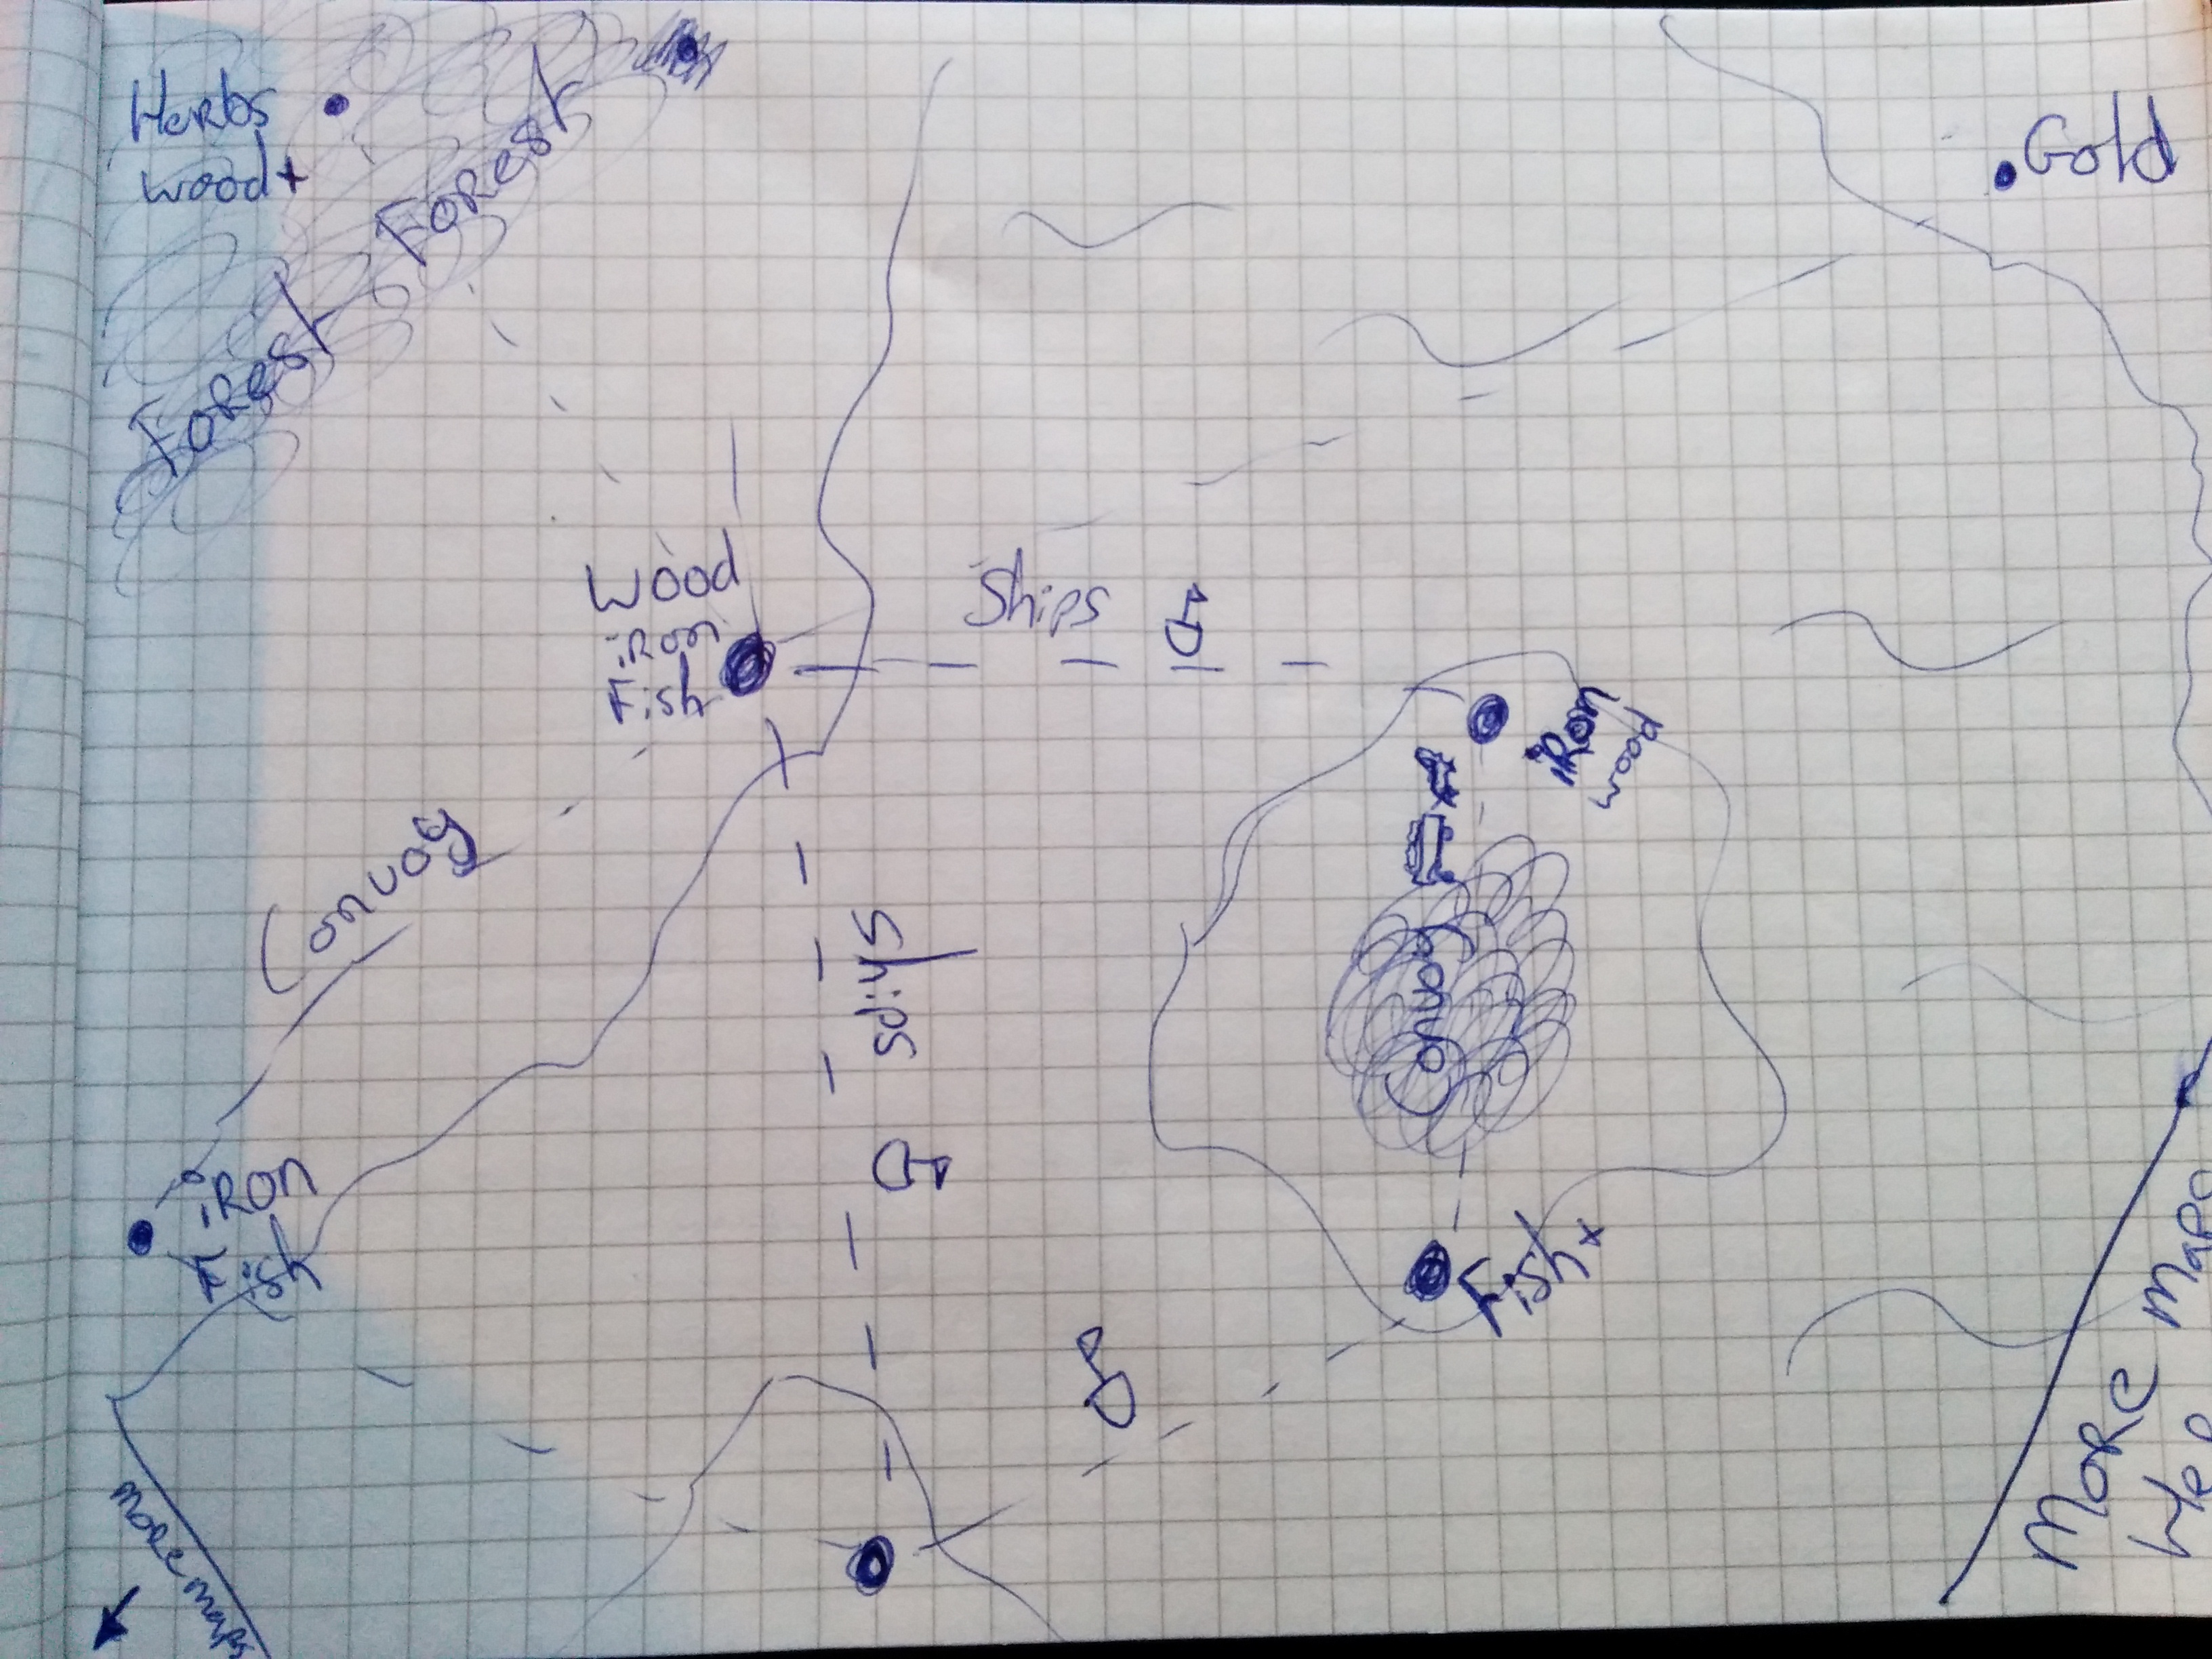 Herbs
wood+
Forest
Forest
Gold
wood
iron
Fish
Ships
iron
wood
Convoy
Ships
Convoy
iron
Fish
Fish+
more maps
More maps